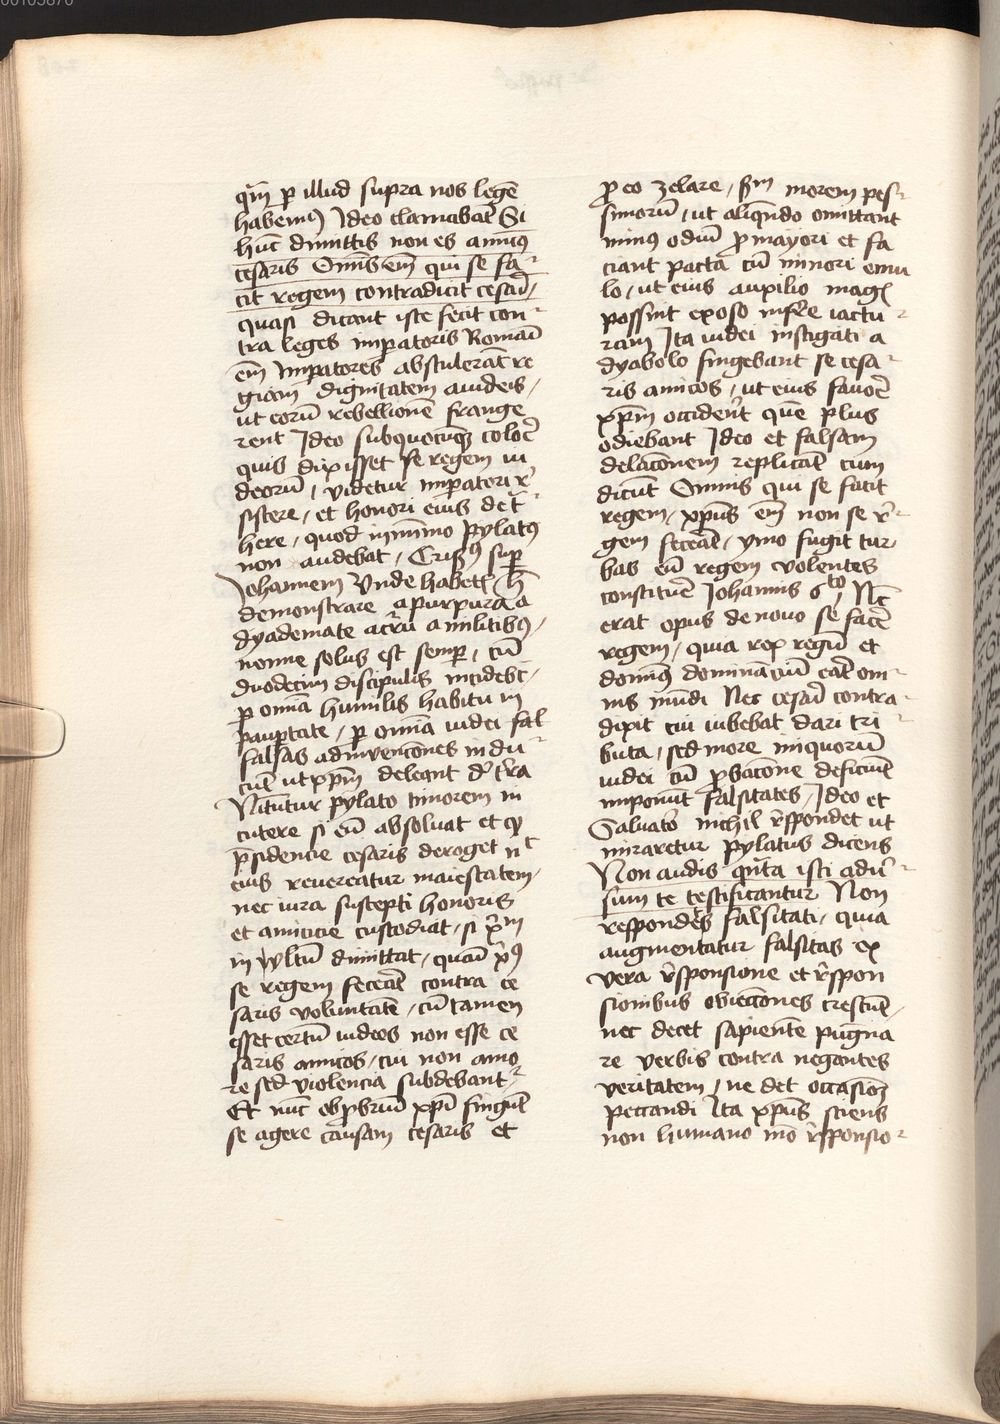 qm̄ p illud supra nos legē
habemꝰ Ideo clamabāt Si
hūc dimittis non es amicꝰ
cesaris Omīs em̄ qui se fa-
cit regem contradicit cesari,
quasi dicant iste fecit con-
tra leges impatoris Romani
em̄ Impatores abstulerāt re
giam dignitatem a iudeis,
ut eorū rebellionē frange
rent Ideo subquocūqꝫ colore
quis dixisset se regem iu
deorū, videtur impatori re
sistere, et honori eius det
here, quod minimo pylatꝰ
non audebat, Crisꝰ sup
Johannem Vnde habetꝭ h̄
demonstrare a purpura a
dyademate a militibꝰ,
nonne solus est semp, cū
duodecim discipulis incidebt,
p omīa humilis habitu in
paupertate, p omīa iudei fal
falsas adinvencōnes indu-
cūt ut xp̄m deleant de terra
Nitūtur pylato timorem in
cutere si eū absoluat et qꝫ
p̄sidencie cesaris deroget nc
eius reuereatur maiestatem,
nec iura suscepti honoris
et amicicie custodiat, si xp̄m
inultū dimittat, quam xp̄s
se regem fecerāt contra ce
saris voluntatē, cū tamen
esset certū iudeos non esse ce
saris amicos, cui non amo
re sed violencia subdebant-
Et nūc obprobriū xp̄i fingūt
se agere causam cesaris et
p eo zelare, sm̄ morem pes-
simorū, ut aliqn̄do omittant
minꝰ odiū p mayori et fa
ciant pacta cū minori emu
lo, ut eius auxilio magꝭ
possint exoso inferre iactu-
ram Ita iudei instigati a
dyabolo fingebant se cesa-
ris amicos, ut eius fauore
xp̄m occiderēt quē plus
odiebant Ideo et falsam
delacōnem replicāt cum
dicūt Omnis qui se facit
regem, xp̄us em̄ non se re-
gem fecerāt, ymo fugit tur
bas eū regem volentes
constituere Johannis 6to, Nec
erat opus de nouo se facē
regem, quia rex regū et
dominꝰ dominanciū erat om-
nis mūdi Nec cesari contra-
dixit cui iubebat dari tri-
buta, sed more iniquorū
iudei cū pbacōne deficiūt
imponūt falsitates, Ideo et
Saluator nichil respondet ut
miraretur pylatus dicens
Non audis qn̄ta isti aduer-
sum te testificantur Non
respondes falsitati, quia
augmentatur falsitas ex
vera responsione et respon
sionibus obiectiones crescūt,
nec decet sapientē pugna
re verbis contra negantes
veritatem, ne det occasionē
peccandi Ita xp̄us sciens
non humano mō responsio-